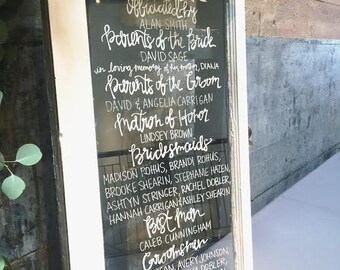 Officiated by
ALAN SMITH
Parents of the Bride
DAVID SAGE
in loving memory of his mother, DIANA
Parents of the Groom
DAVID & ANGELIA CARRIGAN
Matron of Honor
LINDSEY BROWN
Bridesmaids
MADISON ROHUS, BRANDI ROHUS,
BROOKE SHEARIN, STEPHANIE HAZEN,
ASHTYN STRINGER, RACHEL DOBLER,
HANNAH CARRIGAN & ASHLEY SHEARIN
Best Man
CALEB CUNNINGHAM
Groomsmen
AVERY JOHNSON,
DOBLER,